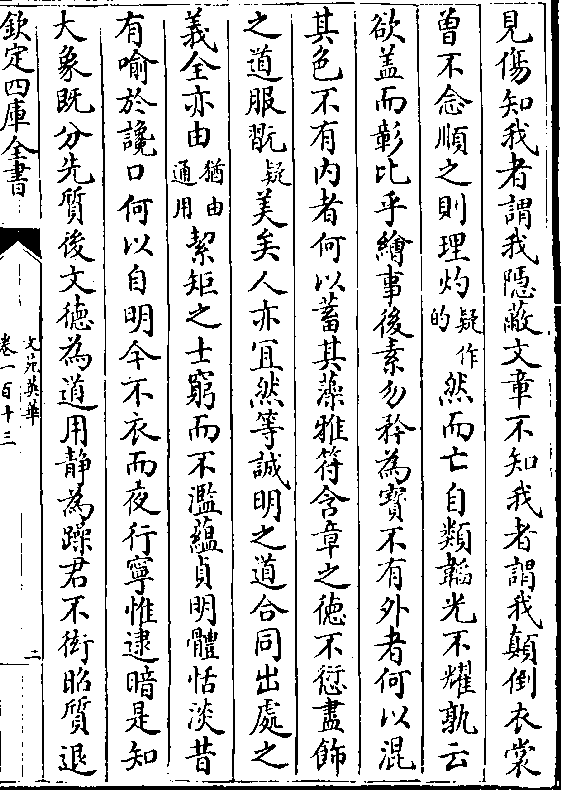 見傷知我者謂我隠蔽文章不知我者謂我顛倒衣裳
曽不念順之則理灼疑作的然而亡自類韜光不耀孰云
欲盖而彰比乎繪事後素勿矜為寳不有外者何以混
其色不有内者何以蓄其藻雅符含章之徳不愆盡飾
之道服既疑美矣人亦冝然等誠明之道合同出處之
義全亦由猶由通用絜矩之士窮而不濫蘊貞明體恬淡昔
有喻於讒口何以自明今不衣而夜行寧惟逮暗是知
大象既分先質後文徳為道用静為躁君不衒昭質退
欽定四庫全書
文苑英華
卷一百十三
二